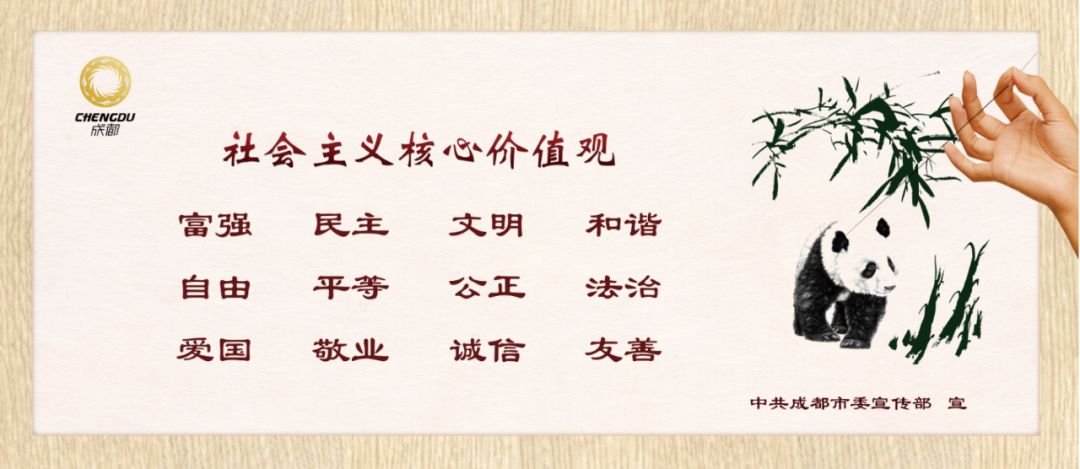 CHENGDU
成都
社会主义核心价值观
富强 民主 文明 和谐
自由 平等 公正 法治
爱国 敬业 诚信 友善
中共成都市委宣传部 宣